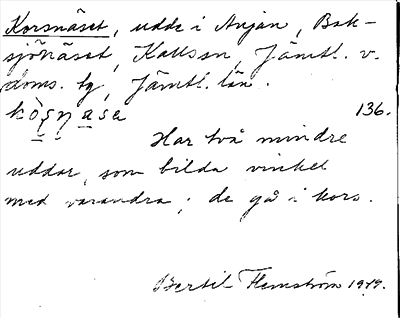 Korsnäset, udde i Anjan, Bak-
sjönäset, Kallsn, Jämtl. v.
doms. tg, Jämtl. län.
136.
Har två mindre
uddar, som bilda vinkel
med varandra; de gå i kors.
Bertil Flemström 1949.